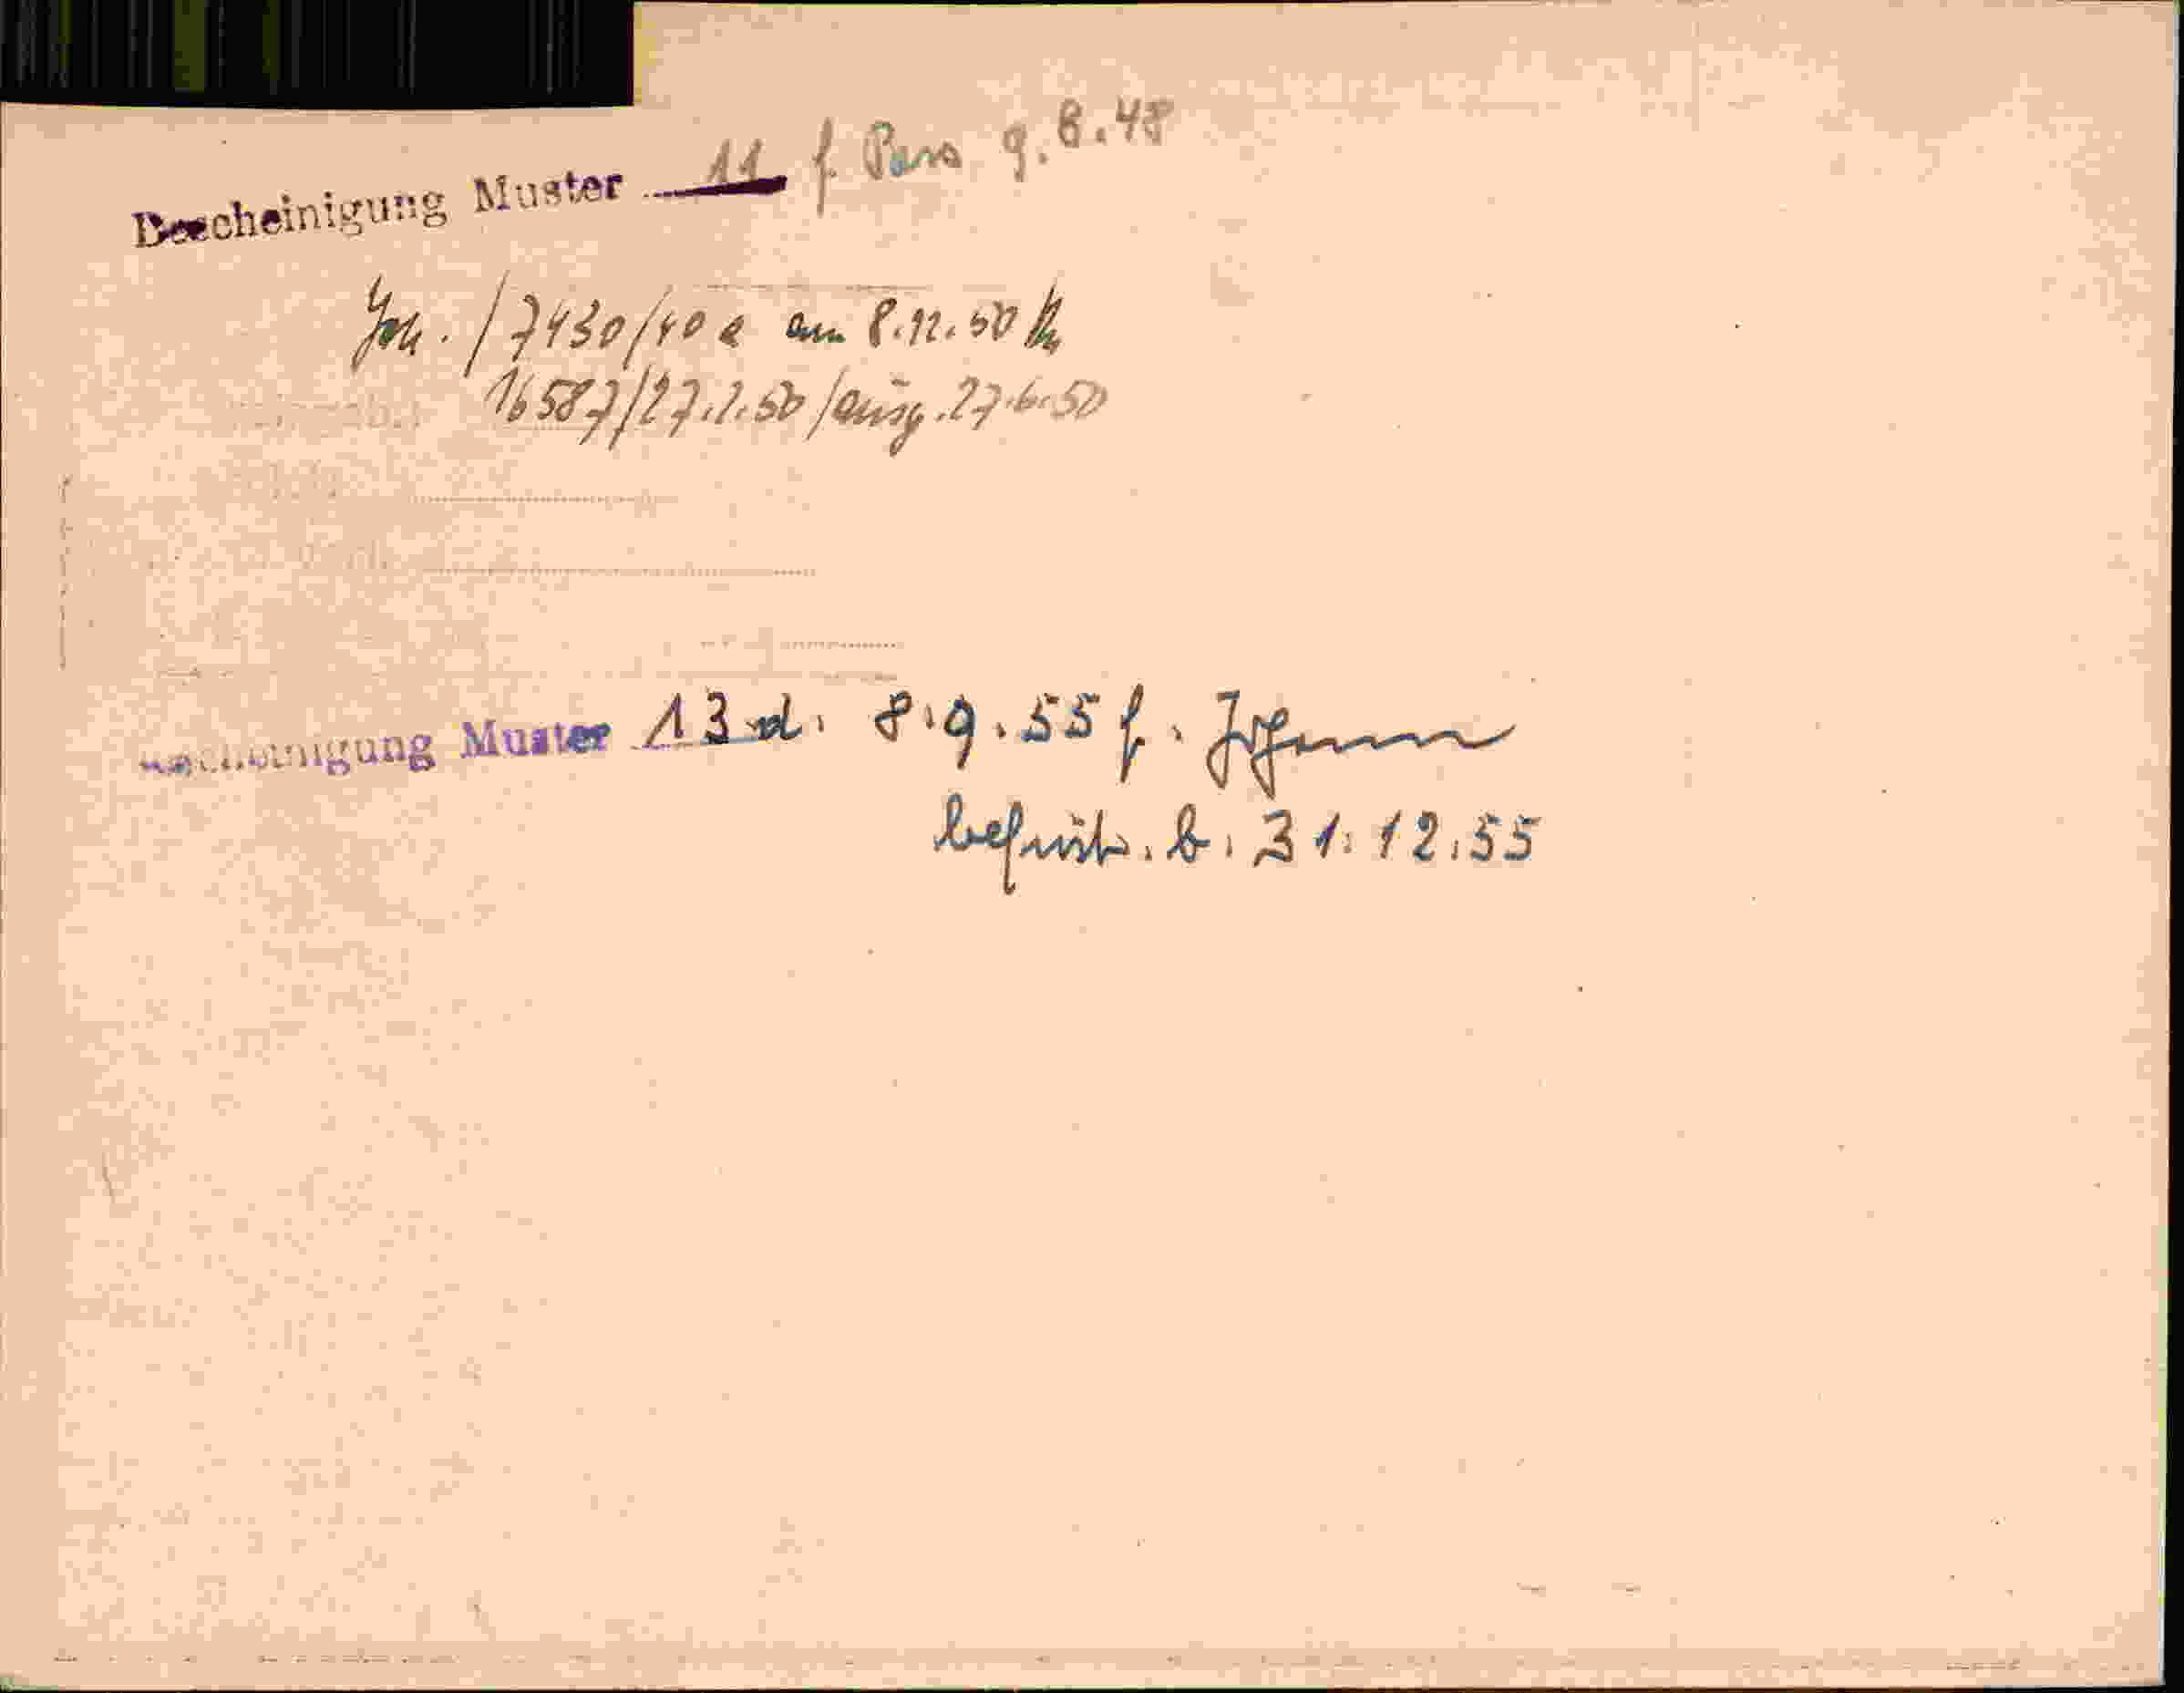 Bescheinigung Muster 11 f. Pass 9.8.48
/7430/40 a am 8.12.50
16587/27.2.50/ausg. 27.6.50
Bescheinigung Muster 13 d. 8.9.55 f. Johann
befrist. b. 31.12.55